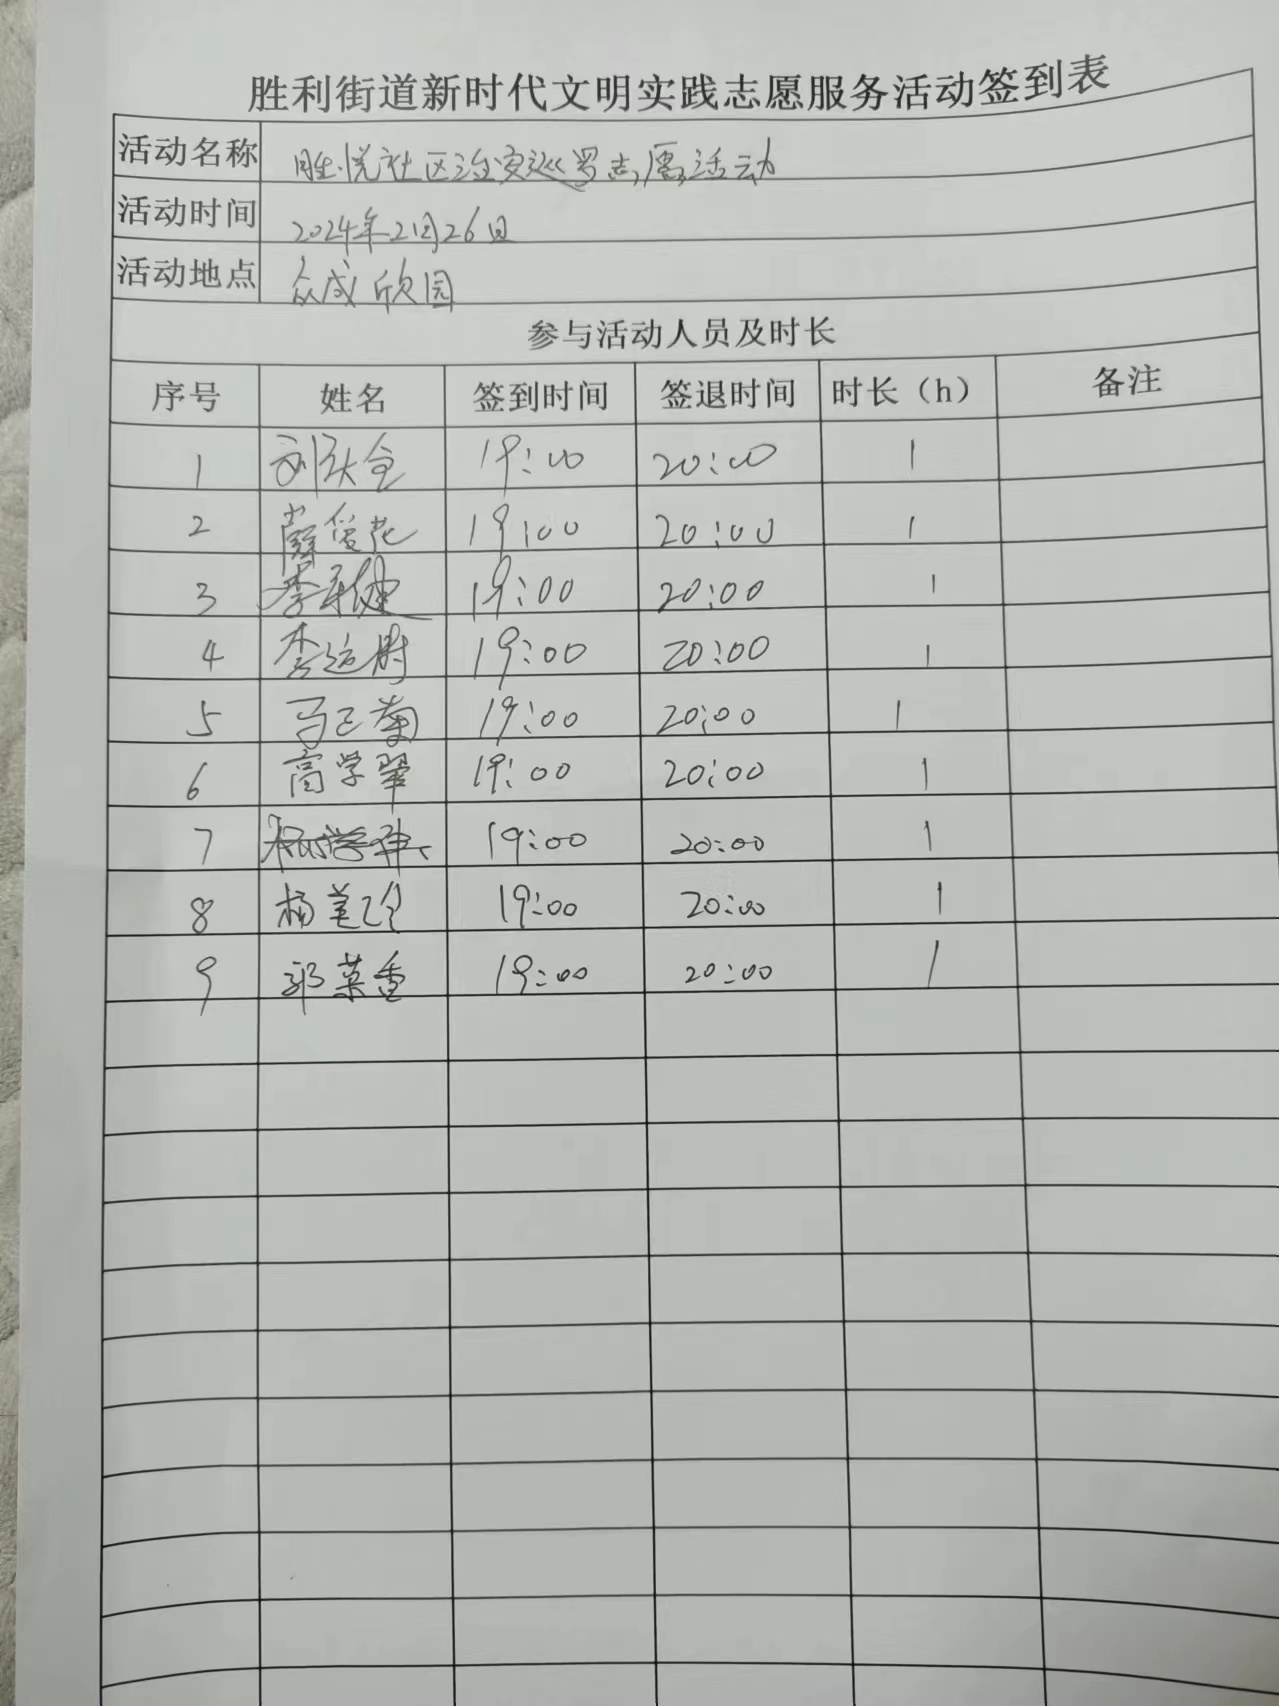 胜利街道新时代文明实践志愿服务活动签到表
活动名称 胜悦社区治安巡罗志愿活动
活动时间 2024年2月26日
活动地点 众成欣园
参与活动人员及时长
序号 姓名 签到时间 签退时间 时长（h） 备注
1 19:00 20:00 1
2 薛爱花 19:00 20:00 1
3 19:00 20:00 1
4 李运尉 19:00 20:00 1
5 马菊 19:00 20:00 1
6 高学翠 19:00 20:00 1
7 19:00 20:00 1
8 杨美玲 19:00 20:00 1
9 郭菜香 19:00 20:00 1